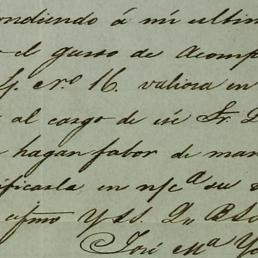 ondiendo á mi ultim
el gusto de Acomp
nro 16. valiosa en
al cargo de ese Sr. D
hagan fabor de man
ificarla en n/c^a su
afmo y SS. Q. B S
José M^a Y